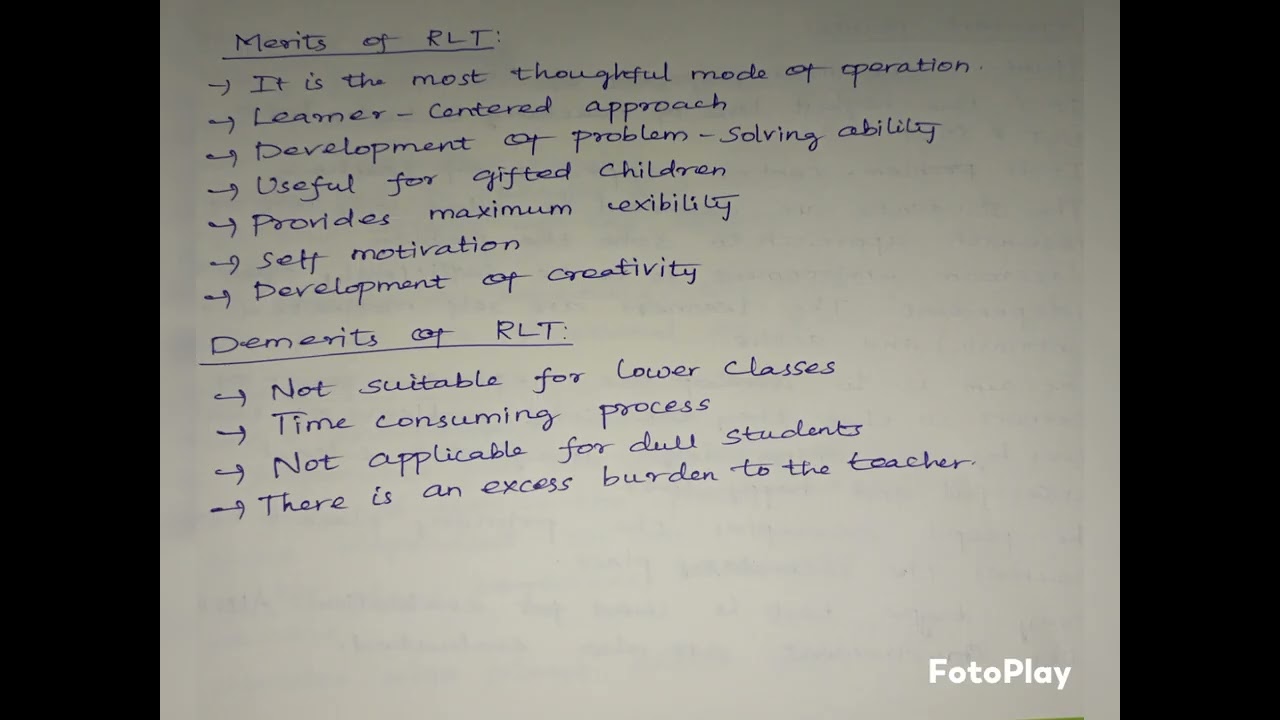 Merits of RLT:
→ It is the most thoughtful mode of operation.
→ Learner - Centered approach
→ Development of problem - solving ability
→ Useful for gifted children
→ Provides maximum lexibility
→ Self motivation
→ Development of creativity
Demerits of RLT:
→ Not suitable for lower classes
→ Time consuming process
→ Not applicable for dull students
→ There is an excess burden to the teacher.
FotoPlay